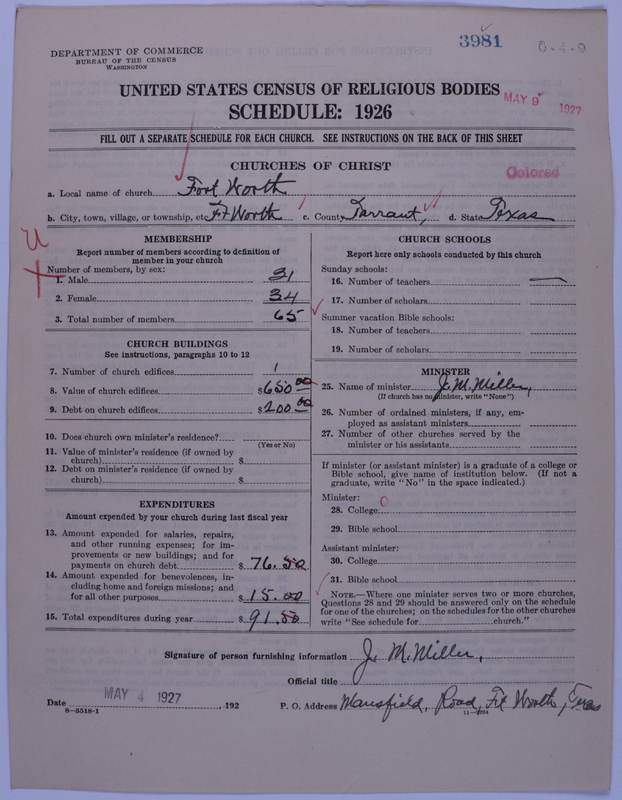 3981
DEPARTMENT OF COMMERCE
BUREAU OF THE CENSUS
WASHINGTON
UNITED STATES CENSUS OF RELIGIOUS BODIES
MAY 9 1927
SCHEDULE: 1926
FILL OUT A SEPARATE SCHEDULE FOR EACH CHURCH. SEE INSTRUCTIONS ON THE BACK OF THIS SHEET
CHURCHES OF CHRIST
Colored
a. Local name of church Fort Worth
b. City, town, village, or township, etc Ft Worth c. County Tarrant, d. State Texas
MEMBERSHIP
Report number of members according to definition of
member in your church
Number of members, by sex:
1. Male 31
2. Female 34
3. Total number of members 65
CHURCH BUILDINGS
See instructions, paragraphs 10 to 12
7. Number of church edifices 1
8. Value of church edifices $650.00
9. Debt on church edifices $200.00
10. Does church own minister's residence?
(Yes or No)
11. Value of minister's residence (if owned by
church) $
12. Debt on minister's residence (if owned by
church) $
EXPENDITURES
Amount expended by your church during last fiscal year
13. Amount expended for salaries, repairs,
and other running expenses; for im-
provements or new buildings; and for
payments on church debt $76.50
14. Amount expended for benevolences, in-
cluding home and foreign missions; and
for all other purposes $15.00
15. Total expenditures during year $91.50
CHURCH SCHOOLS
Report here only schools conducted by this church
Sunday schools:
16. Number of teachers
17. Number of scholars
Summer vacation Bible schools:
18. Number of teachers
19. Number of scholars
MINISTER
25. Name of minister J. M. Miller,
(If church has no minister, write "None")
26. Number of ordained ministers, if any, em-
ployed as assistant ministers
27. Number of other churches served by the
minister or his assistants
If minister (or assistant minister) is a graduate of a college or
Bible school, give name of institution below. (If not a
graduate, write "No" in the space indicated.)
Minister:
28. College 0
29. Bible school
Assistant minister:
30. College
31. Bible school
NOTE.—Where one minister serves two or more churches,
Questions 28 and 29 should be answered only on the schedule
for one of the churches; on the schedules for the other churches
write "See schedule for church."
Signature of person furnishing information J. M. Miller,
Official title
Date MAY 4 1927, 192
P. O. Address Mansfield, Road, Ft Worth, Texas
8-5518-1